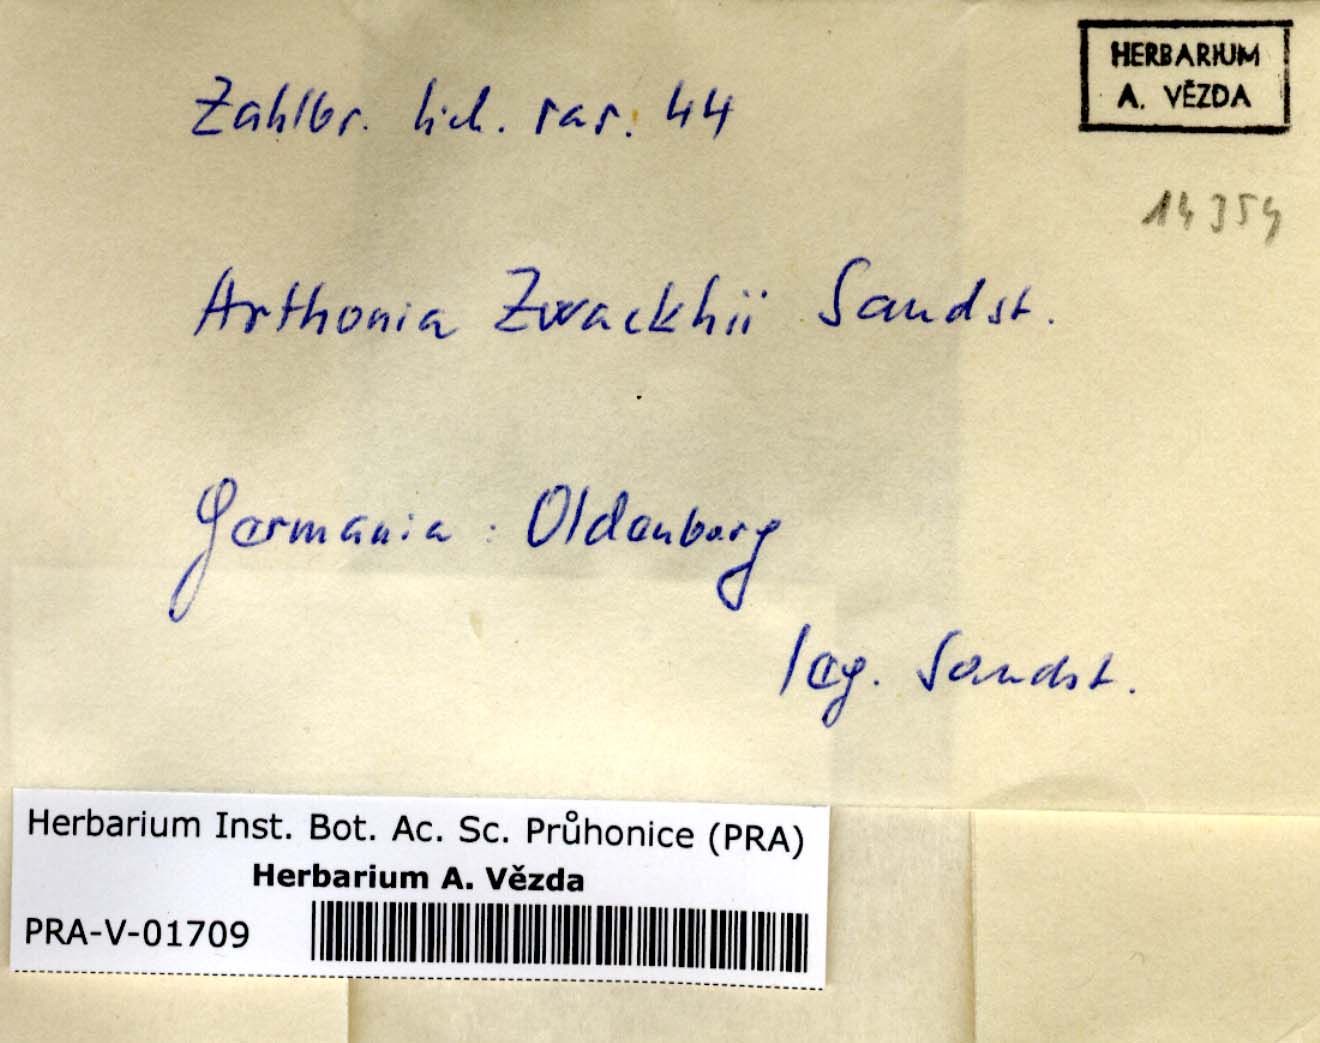 HERBARIUM
A. VĚZDA
Zahlbr. lich. rar. 44
14354
Arthonia Zwackhii Sandst.
Germania: Oldenburg
leg. Sandst.
Herbarium Inst. Bot. Ac. Sc. Průhonice (PRA)
Herbarium A. Vězda
PRA-V-01709